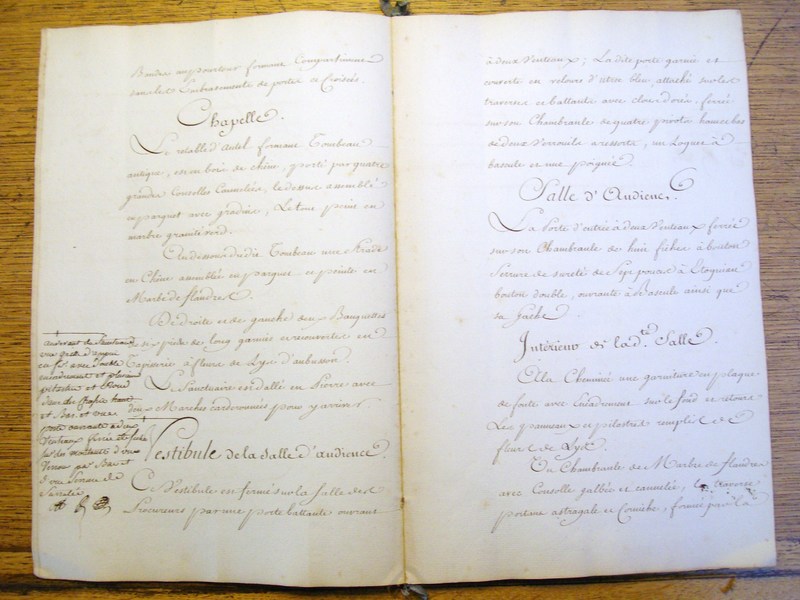 Bandes au pourtour formant Compartiment
sous les Embrasements de portes et Croisés.
Chapelle.
Le retable d'autel formant Tombeau
antique, est en bois de chêne, porté par quatre
grandes Consolles Cannelées, le dessus assemblé
en parquet avec gradins, Le tout peint en
marbre granit verd.
Au dessous dudit Tombeau une Estrade
en Chêne assemblée en parquet et peinte en
Marbre de flandres.
De droite et de gauche deux Banquettes
de six pieds de long garnies et recouvertes en
Tapisserie à fleurs de Lys d'aubusson.
Le Sanctuaire est dallé en Pierre avec
deux Marches pour y arriver
Vestibule de la Salle d'audience.
Le Vestibule est fermé sur la Salle des
Procureurs par une porte battante ouvrant
au devant du Sanctuaire
une grille d'appui
en fer avec
pilastres et
haut
et Bas, et une
porte ouvrante à deux
Venteaux ferrée et fichée
sur des montants
Verrou par Bas et
d'une Serrure de
Sureté
à deux Venteaux; La dite porte garnie et
couverte en velours d'utrec bleu, attaché sur les
traverses et battants avec clous dorés, ferrée
sur son Chambranle de quatre pivots haut et bas
de deux verrouils a ressorts, un Loquet à
bascule et une poignée.
Salle d'Audience.
La Porte d'entrée à deux Venteaux ferrée
sur son Chambranle de huit fiches à bouton
Serrure de sureté de Sept pouces à
bouton double, ouvrante à Bascule ainsi que
sa Gache.
Intérieur de lad.te Salle.
A la Cheminée une garniture en plaque
de fonte avec Encadrement sur le fond et retours
Les panneaux et pilastres remplis de
fleurs de Lys.
Un Chambranle de Marbre de flandres
avec Consolle galbée et cannelée, la traverse
portant astragale et Corniche, formée par la